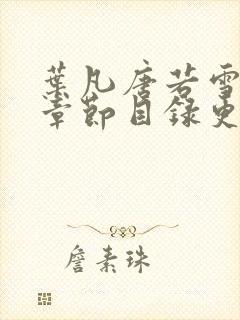 葉凡唐若雪
章節目錄更
詹素珠